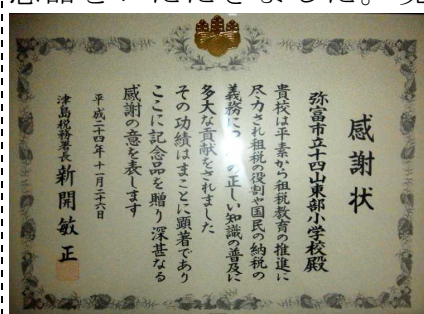 感謝状
弥富市立十四山東部小学校殿
貴校は平素から租税教育の推進に
尽力され租税の役割や国民の納税の
義務に の正しい知識の普及に
多大な貢献をされました
その功績はまことに顕著であり
ここに記念品を贈り深甚なる
感謝の意を表します
平成二十四年十一月二十六日
津島税務署長 新開敏正